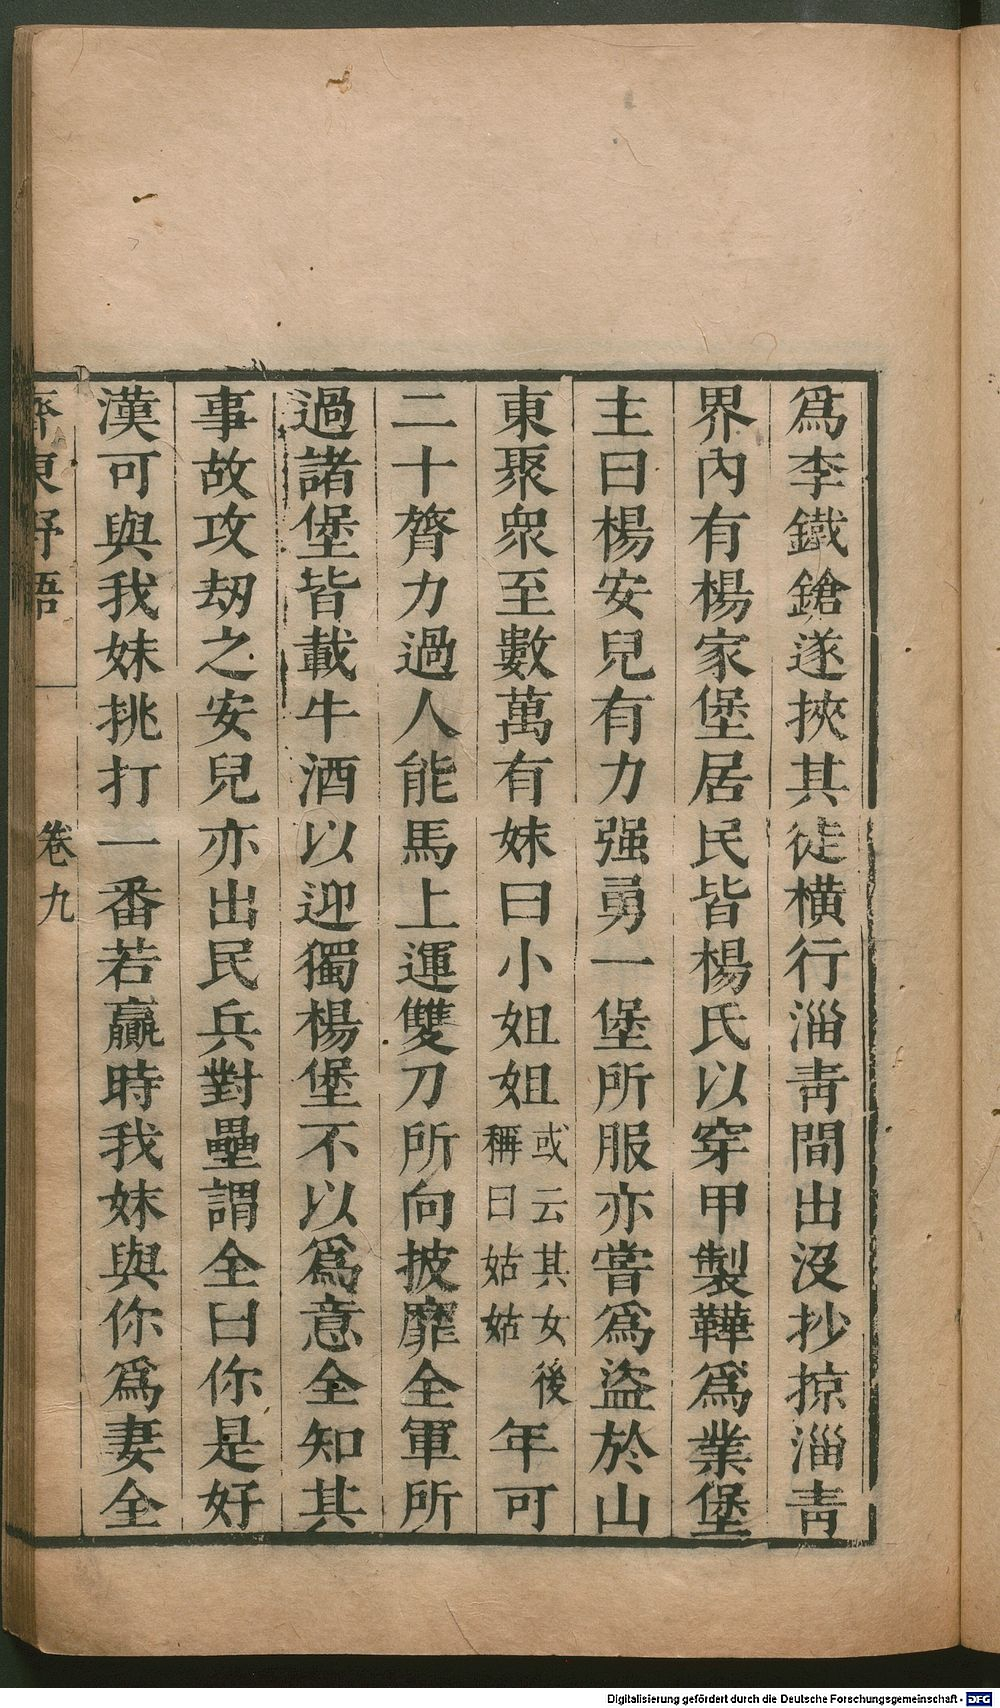 爲李鐵鎗遂挾其徒橫行淄青間出沒抄掠淄青
界內有楊家堡居民皆楊氏以穿甲製鞾爲業堡
主曰楊安兒有力强勇一堡所服亦嘗爲盜於山
東聚衆至數萬有妹曰小姐姐或云其女後稱曰姑姑年可
二十膂力過人能馬上運雙刀所向披靡全軍所
過諸堡皆載牛酒以迎獨楊堡不以爲意全知其
事故攻刼之安兒亦出民兵對壘謂全曰你是好
漢可與我妹挑打一番若贏時我妹與你爲妻全
齊東野語 卷九
Digitalisierung gefördert durch die Deutsche Forschungsgemeinschaft - DFG